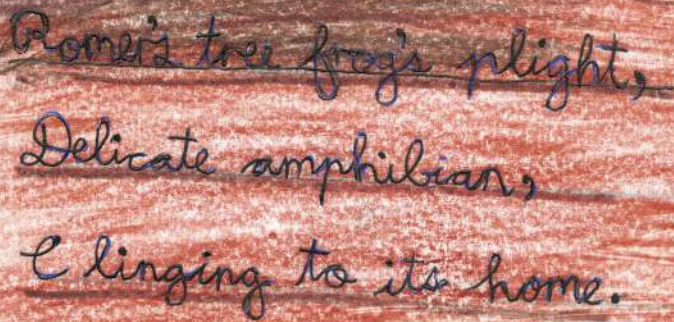 Romer's tree frog's plight,
Delicate amphibian,
Clinging to its home.